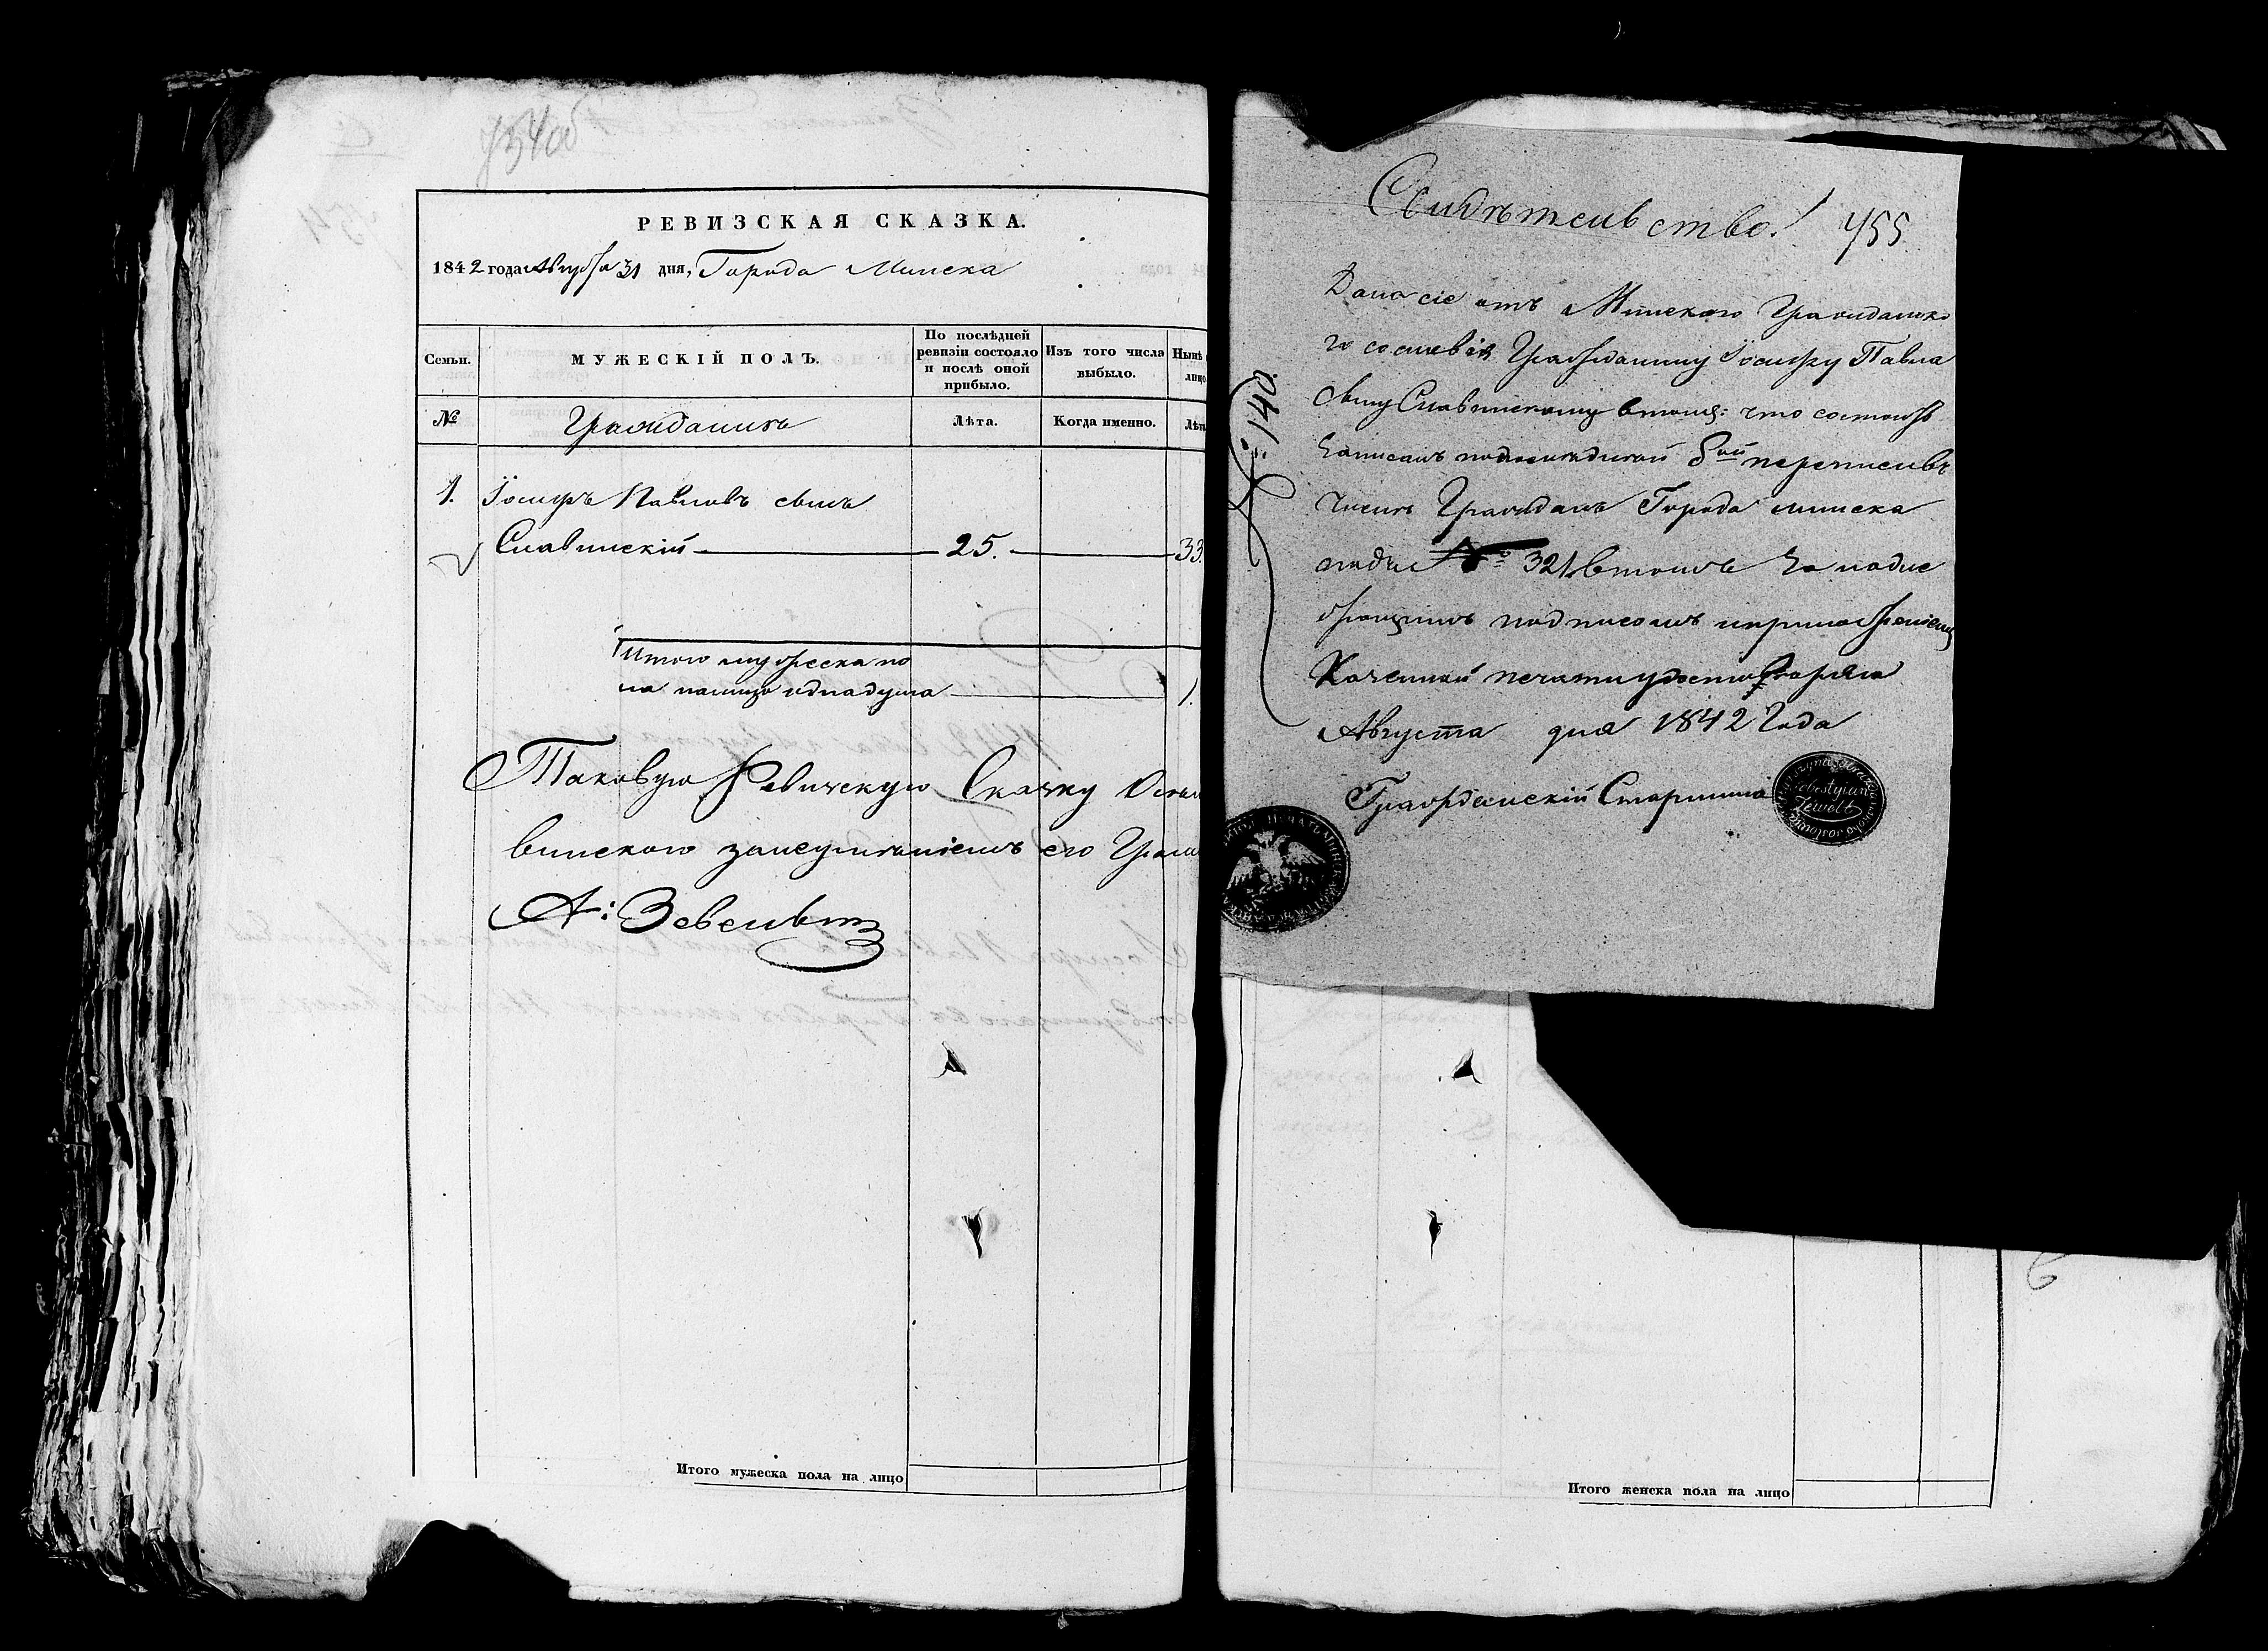 754об
РЕВИЗСКАЯ СКАЗКА.
1842 года Августа 31 дня, Города Минска
Семьи.
МУЖЕСКІЙ ПОЛЪ.
По послѣдней ревизіи состояло и послѣ оной прибыло.
Изъ того числа выбыло.
Нынѣ
лицо
№
Гражданинъ
Лѣта.
Когда именно.
Лѣта
1. Іосифъ Павловъ сынъ
Славинскій 25. 33.
Итого мужеска по
ла налицо одна душа 1.
Таковую Ревизскую Сказку
винского за неумѣніемъ его
А: Зевельтъ
Итого мужеска пола на лицо
Свидѣтельство!
755
Дано сіе отъ Минскаго Гражданска
го сословія Гражданину Іосифу Павла
сыну Славинскому втомъ: что состоитъ
записанъ по 8ой переписи въ
числѣ Гражданъ Города Минска
подъ № 321 втомъ за надле
жащимъ подписомъ и приложеніемъ
Казенной печати удостовѣряю
Августа дня 1842 Года
Гражданскій Старшина
№: 140.
Sebestyian
Zewelt
Итого женска пола на лицо